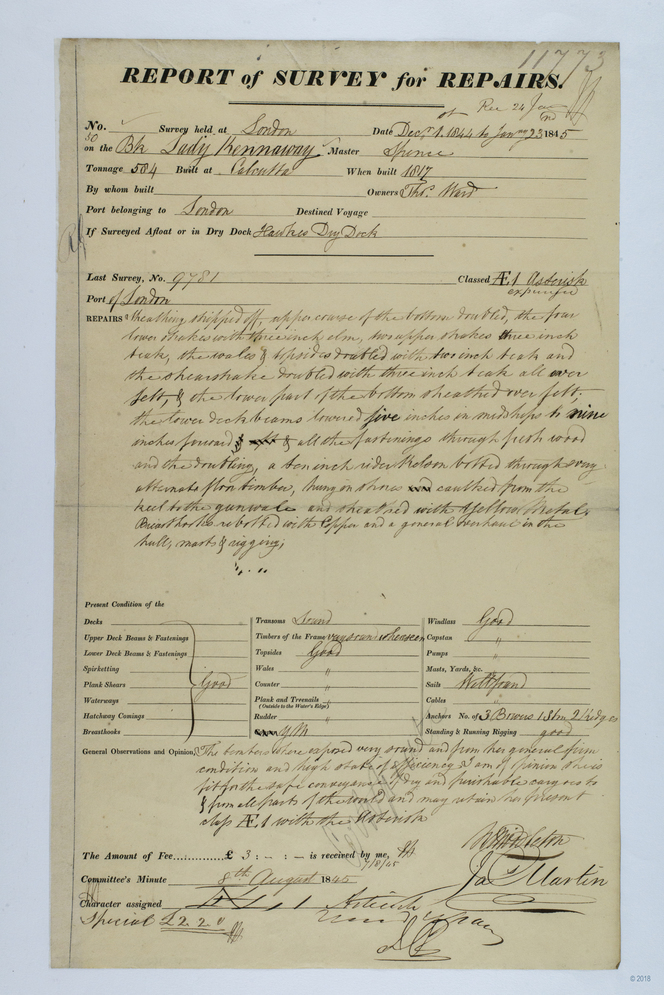 11773
REPORT of SURVEY for REPAIRS.
Rec 24 Jan
No. Survey held at London Date Decr. 1. 1844 to Jany 23 1845
50
on the Bk Lady Kennaway Master Spence
Tonnage 584 Built at Calcutta When built 1817
By whom built Owners Thos. Ward
Port belonging to London Destined Voyage
If Surveyed Afloat or in Dry Dock Hawkes Dry Dock
Last Survey, No. 9781 Classed Æ.1 Asterisk
expunged
Port of London
REPAIRS Sheathing stripped off, upper course of the bottom doubled, the four
lower strakes with three inch elm, two upper strakes three inch
teak, the wales & topsides doubled with two inch teak and
the shearstrake doubled with three inch teak all over
felt, & the lower part of the bottom sheathed over felt;
the lower deck beams lowered five inches in midships to nine
inches forward & all the fastenings through fresh wood
and the doubling, a ten inch rider Kelson bolted through every
alternate floor timber, hung in shores caulked from the
keel to the gunwale and sheathed with Yellow Metal.
Breasthooks rebolted with Copper and a general overhaul in the
hull, masts & rigging;
Present Condition of the
Decks
Upper Deck Beams & Fastenings
Lower Deck Beams & Fastenings
Spirketting
Plank Shears Good
Waterways
Hatchway Comings
Breasthooks
Transoms Sound
Timbers of the Frame very sound where seen
Topsides Good
Wales "
Counter "
Plank and Treenails "
(Outside to the Water's Edge)
Rudder "
Y.M.
Windlass Good
Capstan "
Pumps "
Masts, Yards, &c.
Sails Well found
Cables "
Anchors No. of 3 Bowers 1 Strm 2 Kedges
Standing & Running Rigging good
General Observations and Opinion, The timbers where exposed very sound and from her general firm
condition and high state of efficiency I am of opinion she is
fit for the safe conveyance of dry and perishable cargoes to
& from all parts of the world and may retain her present
class Æ.1 with the Asterisk
The Amount of Fee............£ 3 : - : - is received by me,
7/8/45
Jas Martin
Committee's Minute 8th August 1845
Character assigned
Special £2.2.0
© 2018